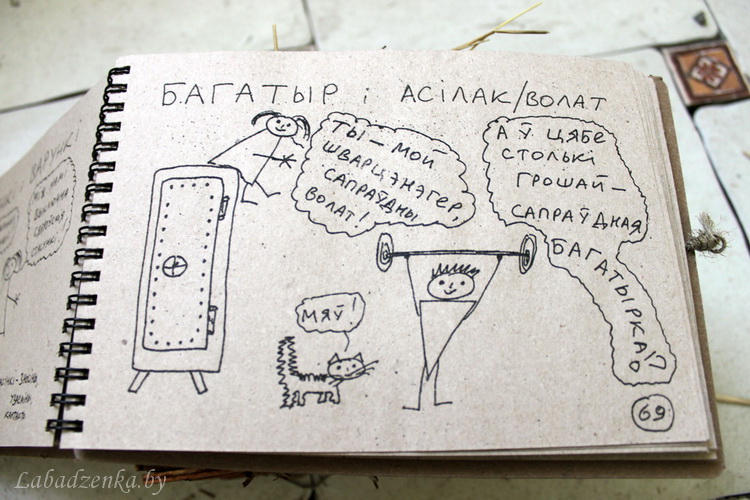 БАГАТЫР і АСІЛАК/ВОЛАТ
ТЫ — МОЙ
ШВАРЦЭНЭГЕР,
САПРАЎДНЫ
ВОЛАТ!
А Ў ЦЯБЕ
СТОЛЬКІ
ГРОШАЙ —
САПРАЎДНАЯ
БАГАТЫРКА!
МЯЎ!
69
Labadzenka.by